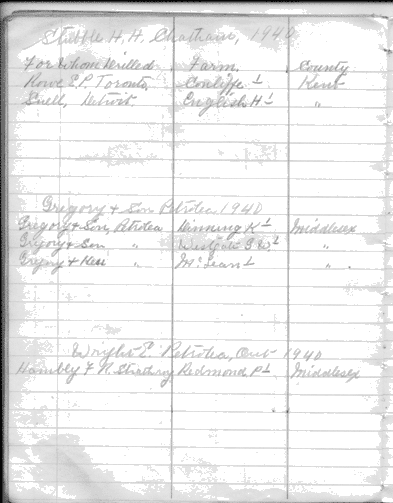 Stubble H. H. Chatham, 1940
For Whom Drilled Farm County
Rowe E. P. Toronto, Conliffe 1 Kent
Snell, Detroit English H 1 "
Gregory & Son Petrolea 1940
Gregory & Son, Petrolea Dinning K 1 Middlesex
Gregory & Son " G. W. 1 "
Gregory & " McLean 1 "
Wright E. Petrolea, Ont 1940
Hambly F R. Strathroy Redmond P 1 Middlesex